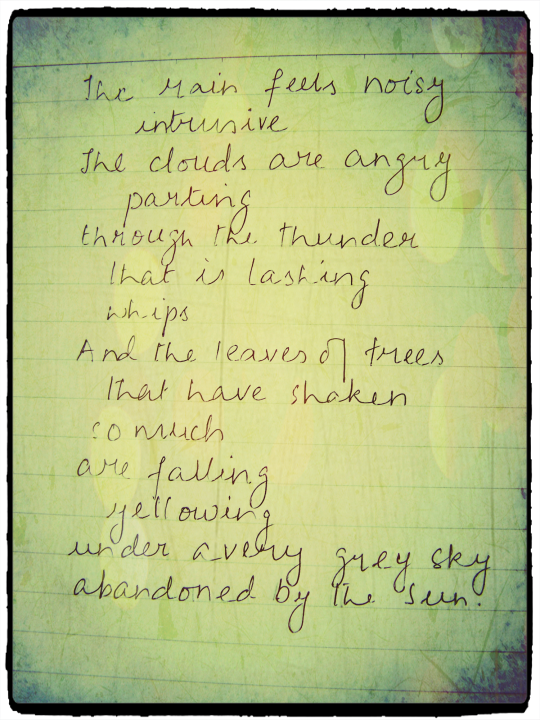 The rain feels noisy
intrusive
The clouds are angry
parting
through the thunder
that is lashing
whips
And the leaves of trees
that have shaken
so much
are falling
yellowing
under a very grey sky
abandoned by the sun.